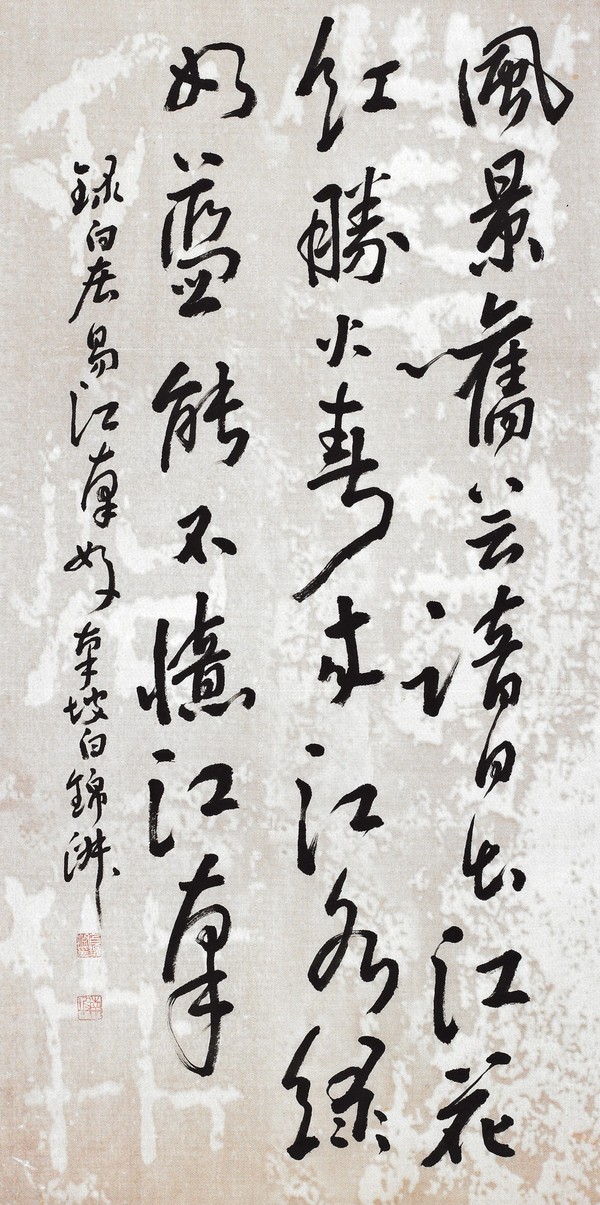 風景舊曾諳日出江花
紅勝火春來江水綠
如藍能不憶江南
錄白居易江南好南坡白錦